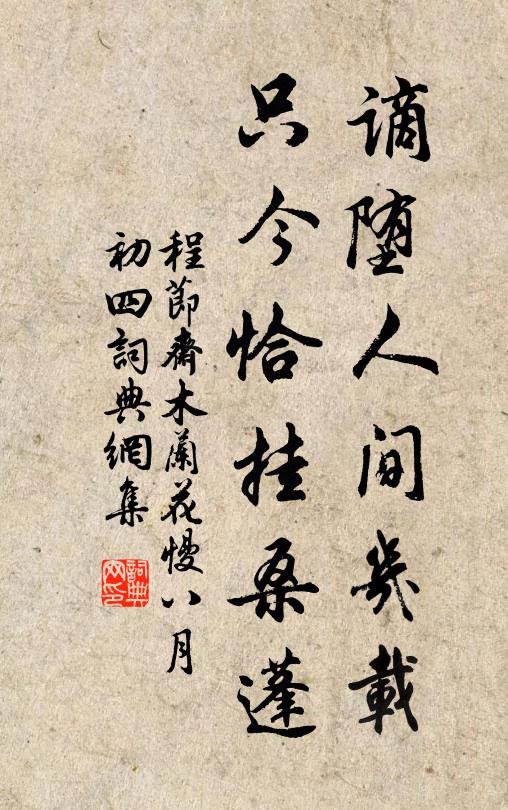 謫堕人間幾載
只今恰挂桑蓬
程節齋木蘭花慢八月
初四詞典網集
詞典网印